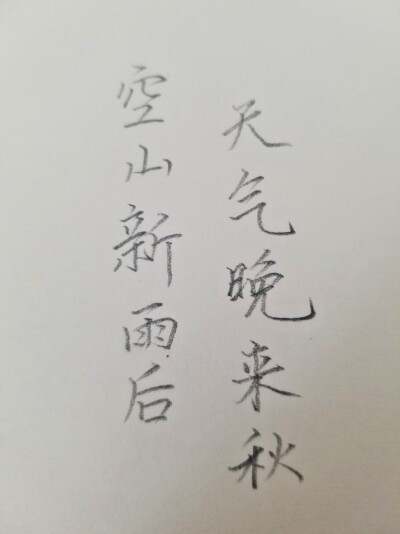 空山新雨后
天气晚来秋